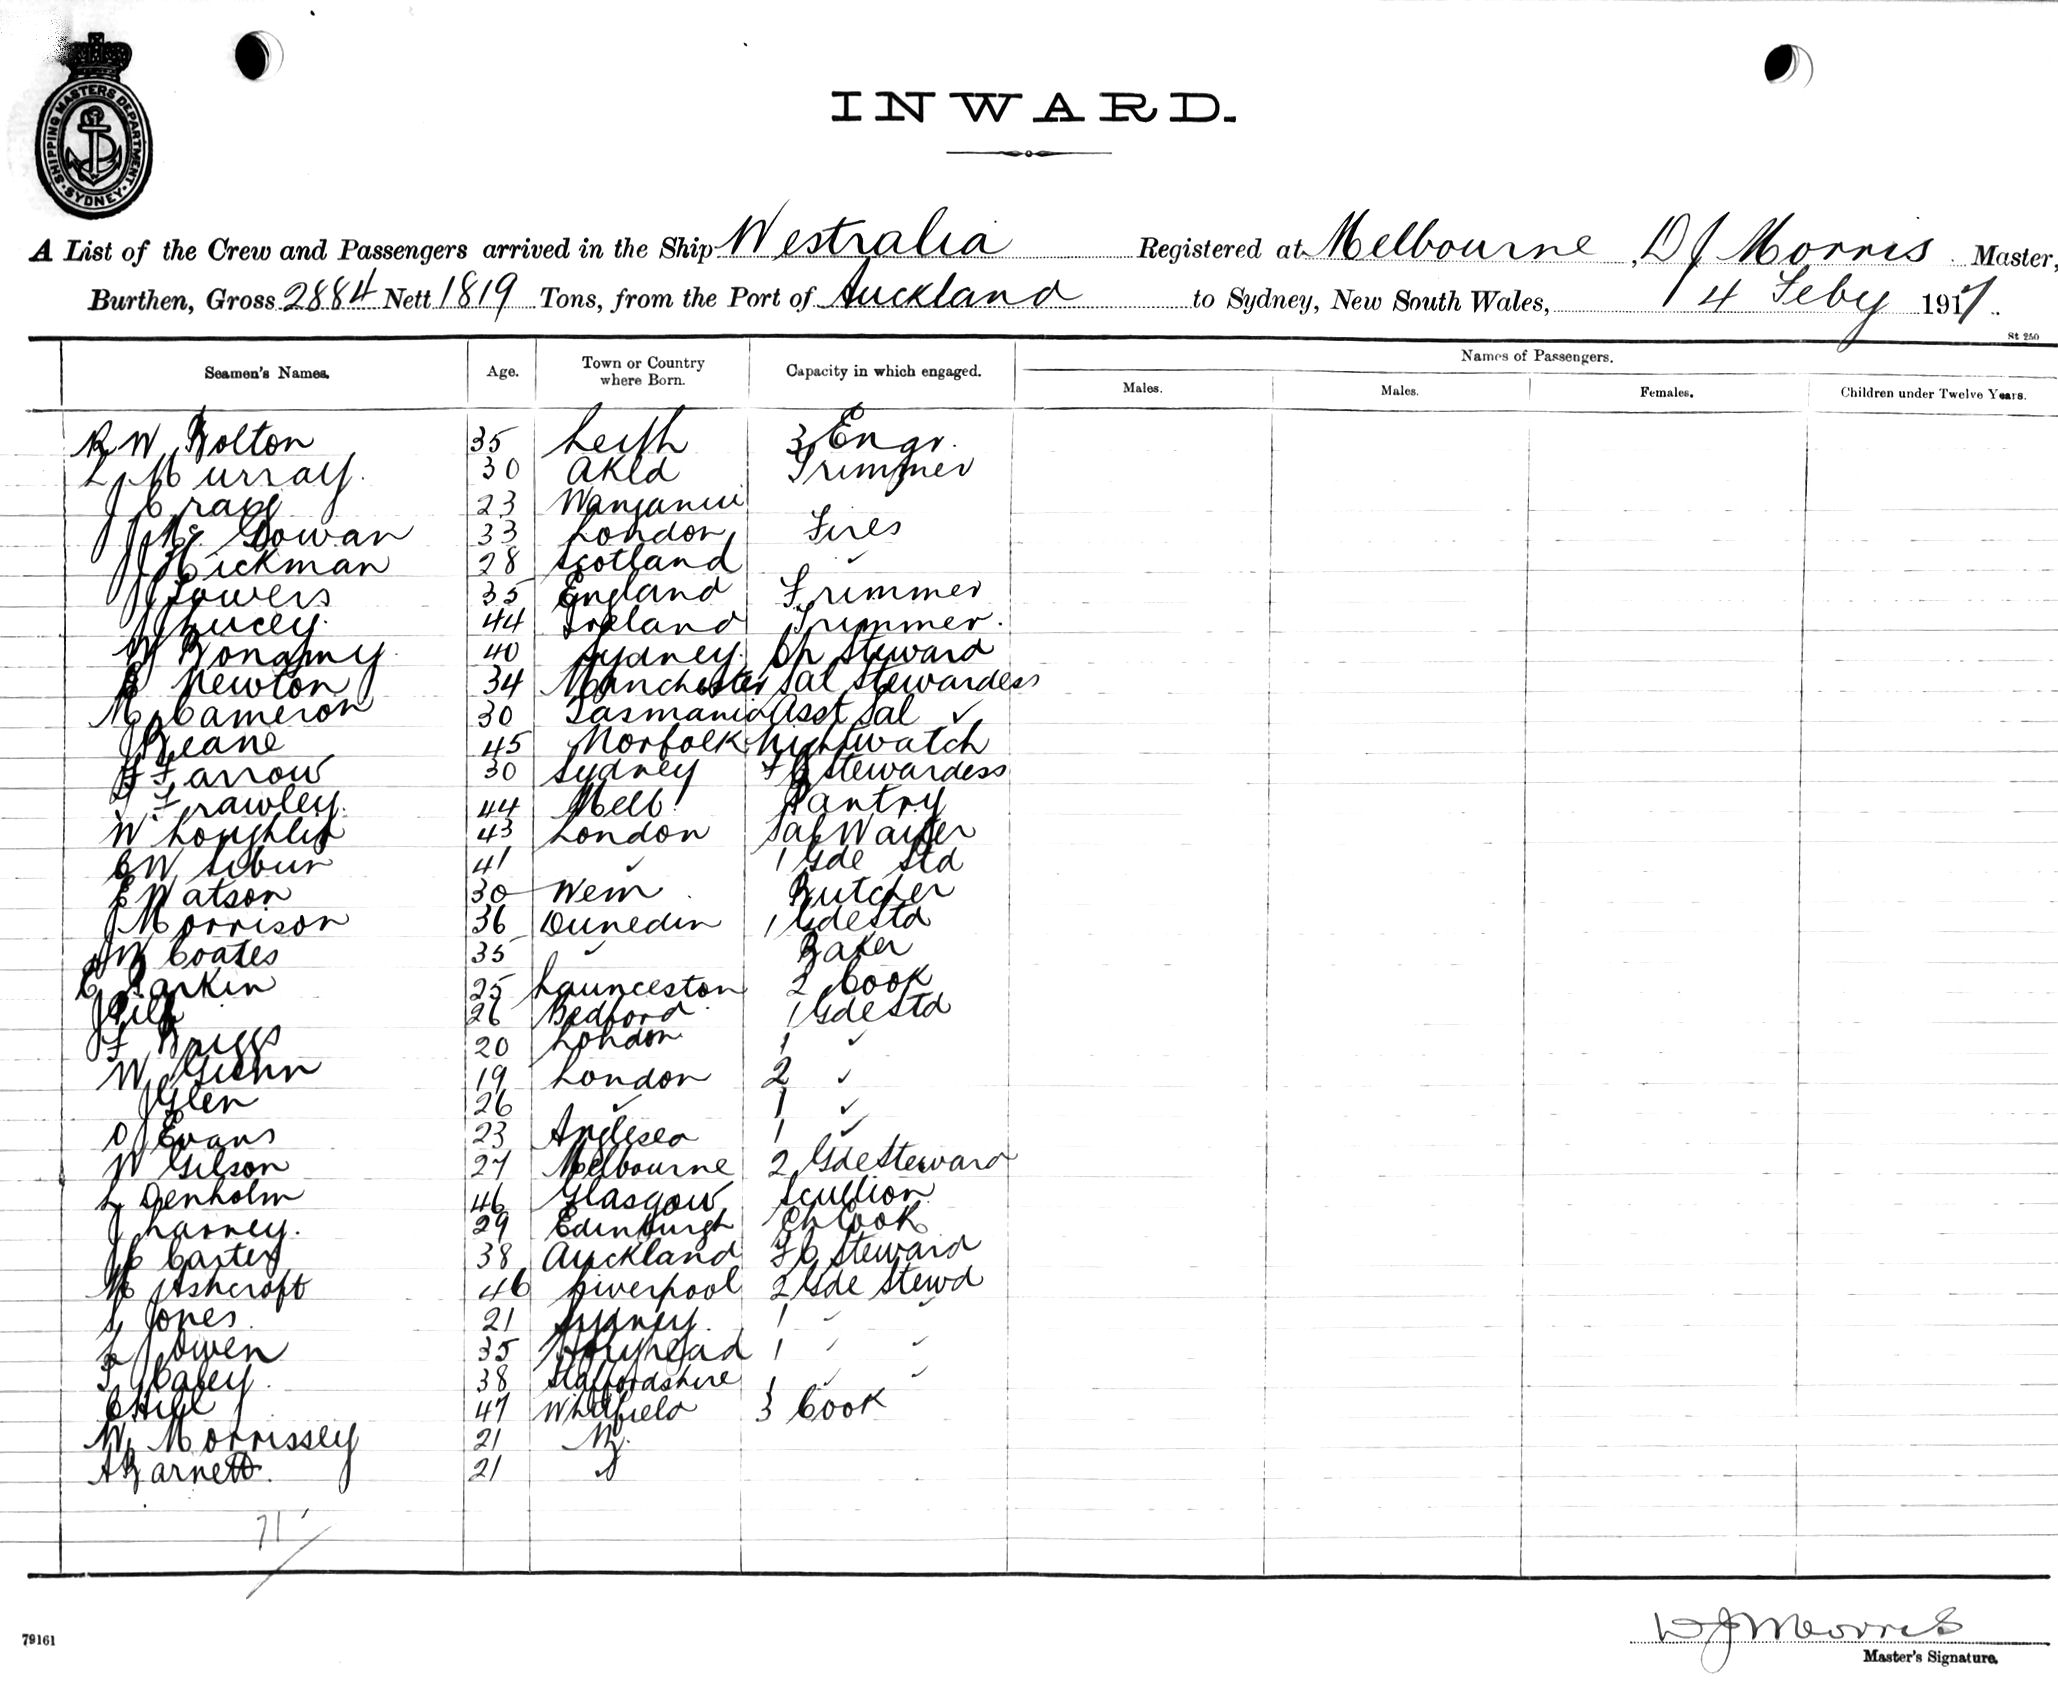 SHIPPING MASTERS DEPARTMENT · SYDNEY ·
INWARD.
A List of the Crew and Passengers arrived in the Ship Westralia Registered at Melbourne, D J Morris Master,
Burthen, Gross 2884 Nett 1819 Tons, from the Port of Auckland to Sydney, New South Wales, 4 Feby 1917.
St 250
Seamen's Names. Age. Town or Country where Born. Capacity in which engaged. Names of Passengers.
Males. Males. Females. Children under Twelve Years.
R W Bolton 35 Leith 3 Engr.
L Murray. 30 Akld Trimmer
J Craig 23 Wanganui
J McGowan 33 London Fires
J Hickman 28 Scotland ✓
J Towers 35 England Trimmer
J Lucey. 44 Ireland Trimmer.
W Bonamy. 40 Sydney. Ch Steward
E Newton 34 Manchester Sal Stewardess
M Cameron 30 Tasmania Asst Sal ✓
J Keane 45 Norfolk Nightwatch
F Farrow 30 Sydney F C Stewardess
Frawley. 44 Melb. Pantry
W Loughlin 43 London Sal Waiter
C W Sibun 41 ✓ 1 Gde Std
E Watson 30 Wem Butcher
J Morrison 36 Dunedin 1 Gde Std
W Coates 35 ✓ Baker
C Larkin 25 Launceston 2 Cook
J 26 Bedford 1 Gde Std
F Briggs 20 London 1 ✓
W Glenn 19 London 2 ✓
J Glen 26 ✓ 1 ✓
O J Evans 23 Anglesea 1 ✓
W Gilson 27 Melbourne 2 Gde Steward
L Denholm 46 Glasgow Scullion
J Charney. 29 Edinburgh Ch Cook
J C Carter 38 Auckland F C Steward
M Ashcroft 46 Liverpool 2 Gde Stewd
S Jones. 21 Sydney. 1 ✓ ✓
L J Owen 35 Holyhead 1 ✓ ✓
F Caley. 38 Staffordshire 1 ✓ ✓
C Hill 47 Whitfield 3 Cook
W Morrissey 21 NZ.
A Barnett. 21 ✓
71
79161
D J Morris
Master's Signature.